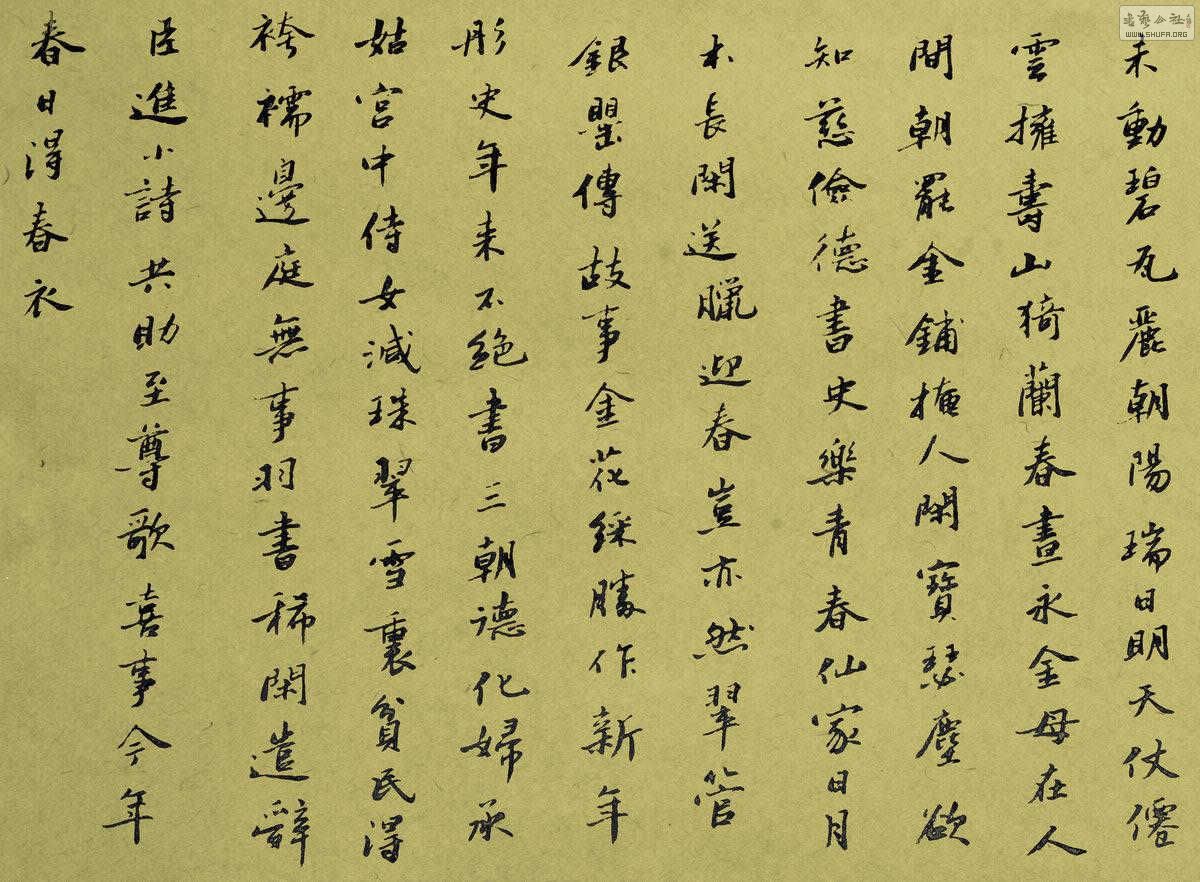 未動碧瓦麗朝陽瑞日明天仗僊
雲擁壽山猗蘭春晝永金母在人
間朝罷金鋪掩人閑寶瑟塵欲
知慈儉德書史樂青春仙家日月
本長閑送臘迎春豈亦然翠管
銀罌傳故事金花綵勝作新年
彤史年来不絕書三朝德化婦承
姑宮中侍女減珠翠雪裏貧民得
袴襦邊庭無事羽書稀閑遣辭
臣進小詩共助至尊歌喜事今年
春日得春衣
书艺公社
WWW.SHUFA.ORG